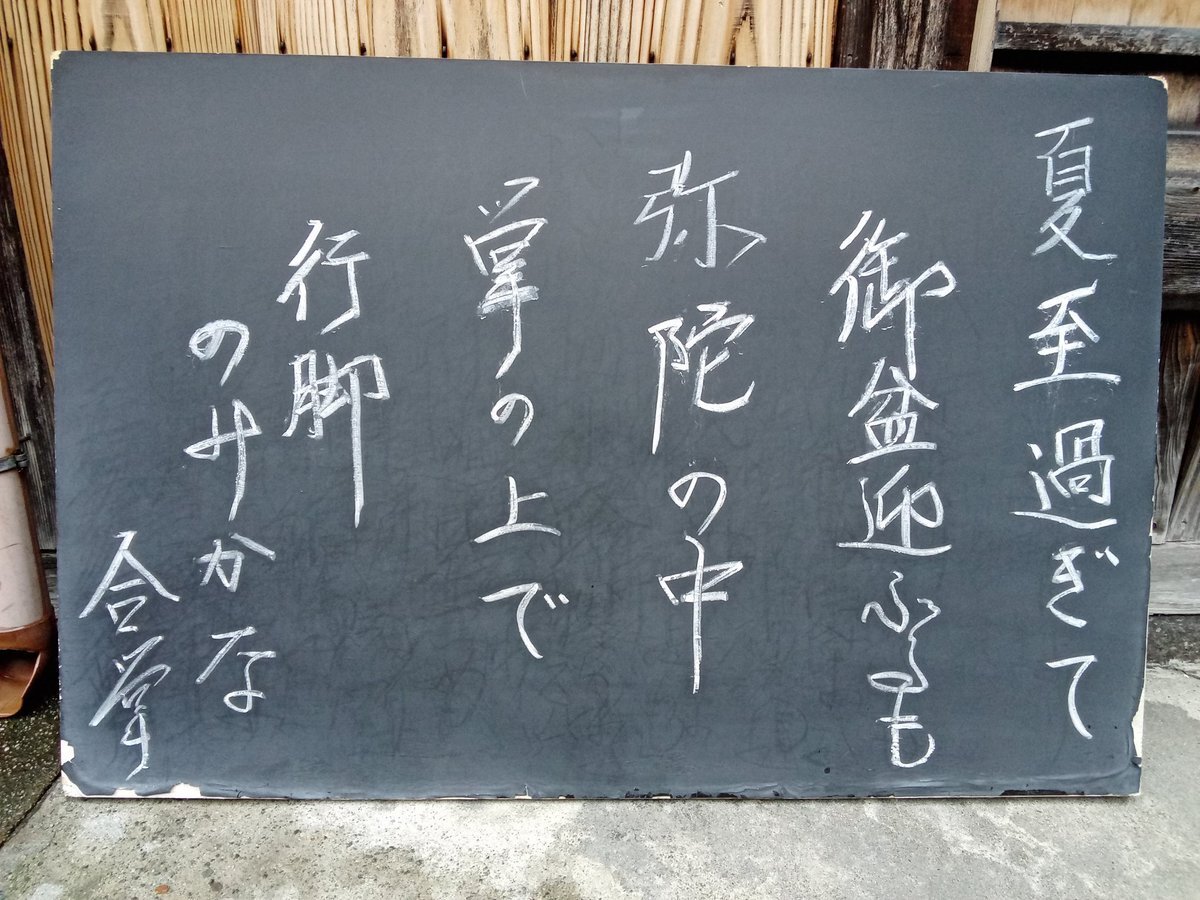 夏至過ぎて
御盆迎ふるも
弥陀の中
掌の上で
行脚
のみかな
合掌